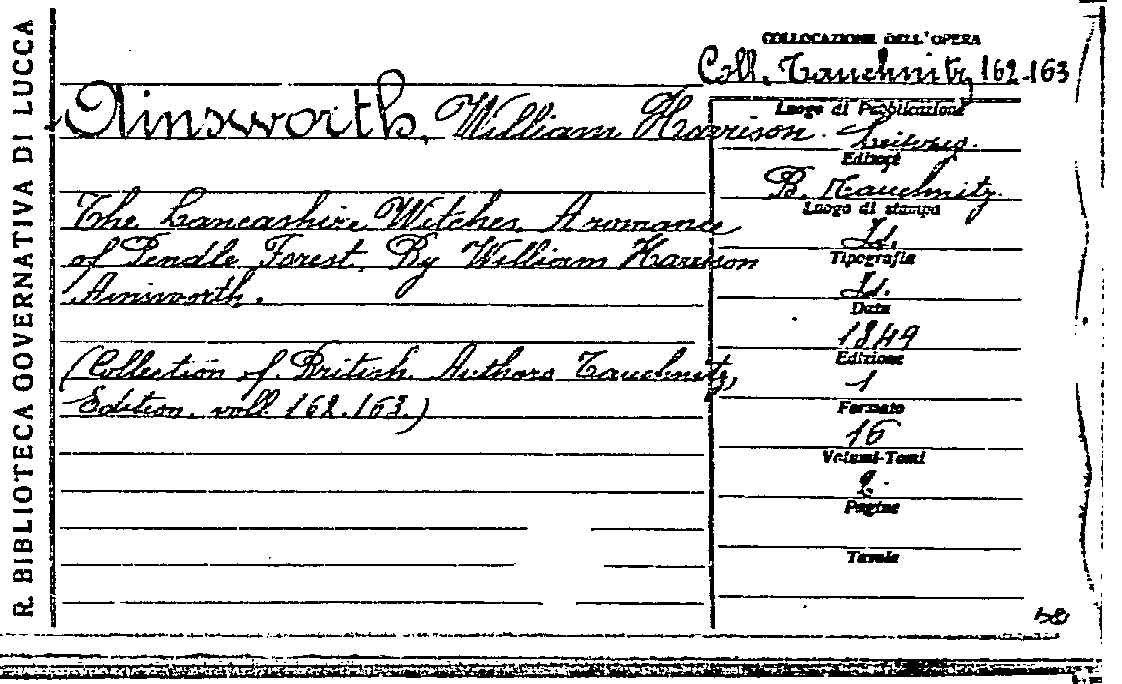 R. BIBLIOTECA GOVERNATIVA DI LUCCA
COLLOCAZIONE DELL'OPERA
Coll. Tauchnitz 162-163
Ainsworth, William Harrison.
The Lancashire Witches. A romance
of Pendle Forest. By William Harrison
Ainsworth.
(Collection of British Authors Tauchnitz,
Edition. voll. 162.163.)
Luogo di Pubblicazione
Leipzig.
Editore
B. Tauchnitz.
Luogo di stampa
Id.
Tipografia
Id.
Data
1849
Edizione
1
Formato
16
Volumi-Tomi
2.
Pagine
Tavole